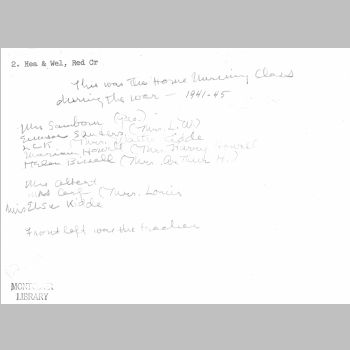 2. Hea & Wel, Red Cr
This was the Home Nursing Class
during the war — 1941-45
Mrs Sanborn (Geo.)
Sanders (Mrs. L.W.)
Kidde
Marian Howell (Mrs. Harvey Howell)
Helen Bissell (Mrs. Arthur H.)
Mrs Albert
(Mrs. Louis
Mrs Elsa Kidde
Front left was the teacher
MONTCLAIR
LIBRARY